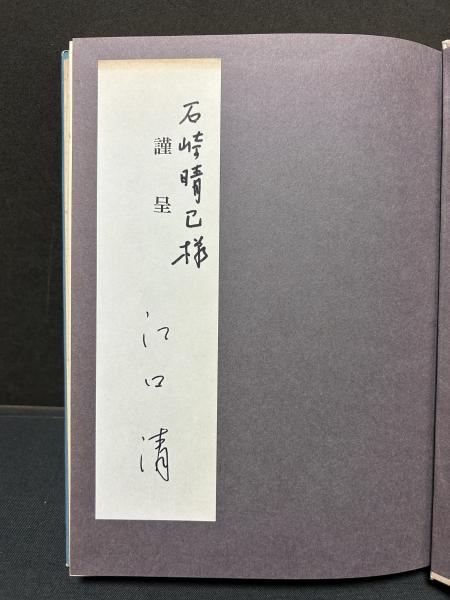 石崎晴己様
謹呈
江口清